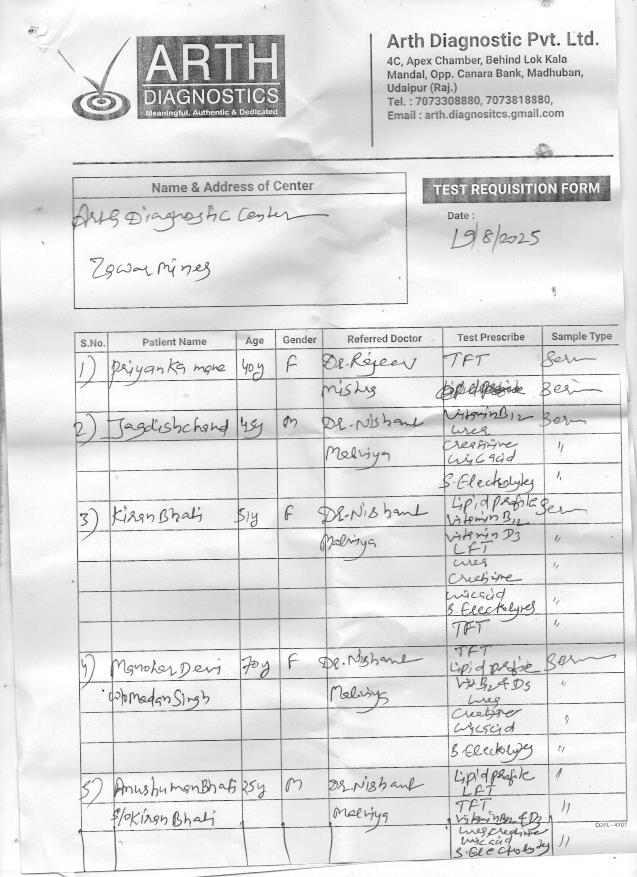 ARTH
DIAGNOSTICS
Meaningful, Authentic & Dedicated
Arth Diagnostic Pvt. Ltd.
4C, Apex Chamber, Behind Lok Kala
Mandal, Opp. Canara Bank, Madhuban,
Udaipur (Raj.)
Tel. : 7073308880, 7073818880,
Email : arth.diagnositcs.gmail.com
Name & Address of Center
Arth Diagnostic Center
Zawar Mines
TEST REQUISITION FORM
Date :
19/8/2025
S.No. Patient Name Age Gender Referred Doctor Test Prescribe Sample Type
1) Priyanka mane 40y F Dr. Rajeev TFT Serum
Mishra Serum
2) Jagdishchand 45y M Dr. Nishant Vitamin B12 Serum
urea
Malviya Creatinine "
uric acid
S. Electrolytes "
3) Kiran Bhati 51y F Dr. Nishant Lipid profile Serum
Vitamin B12
Malviya Vitamin D3 "
LFT
urea "
Creatinine
uric acid "
S. Electrolytes
TFT "
4) Manohar Devi 70y F Dr. Nishant TFT
Lipid profile Serum
w/o Madan Singh Malviya Vit B12 & D3 "
urea
Creatinine "
uric acid
S. Electrolytes "
5) Anushuman Bhati 25y M Dr. Nishant Lipid profile "
LFT
S/o Kiran Bhati Malviya TFT "
Vitamin B12 & D3
COPL-4707
urea creatinine
uric acid "
S. Electrolytes